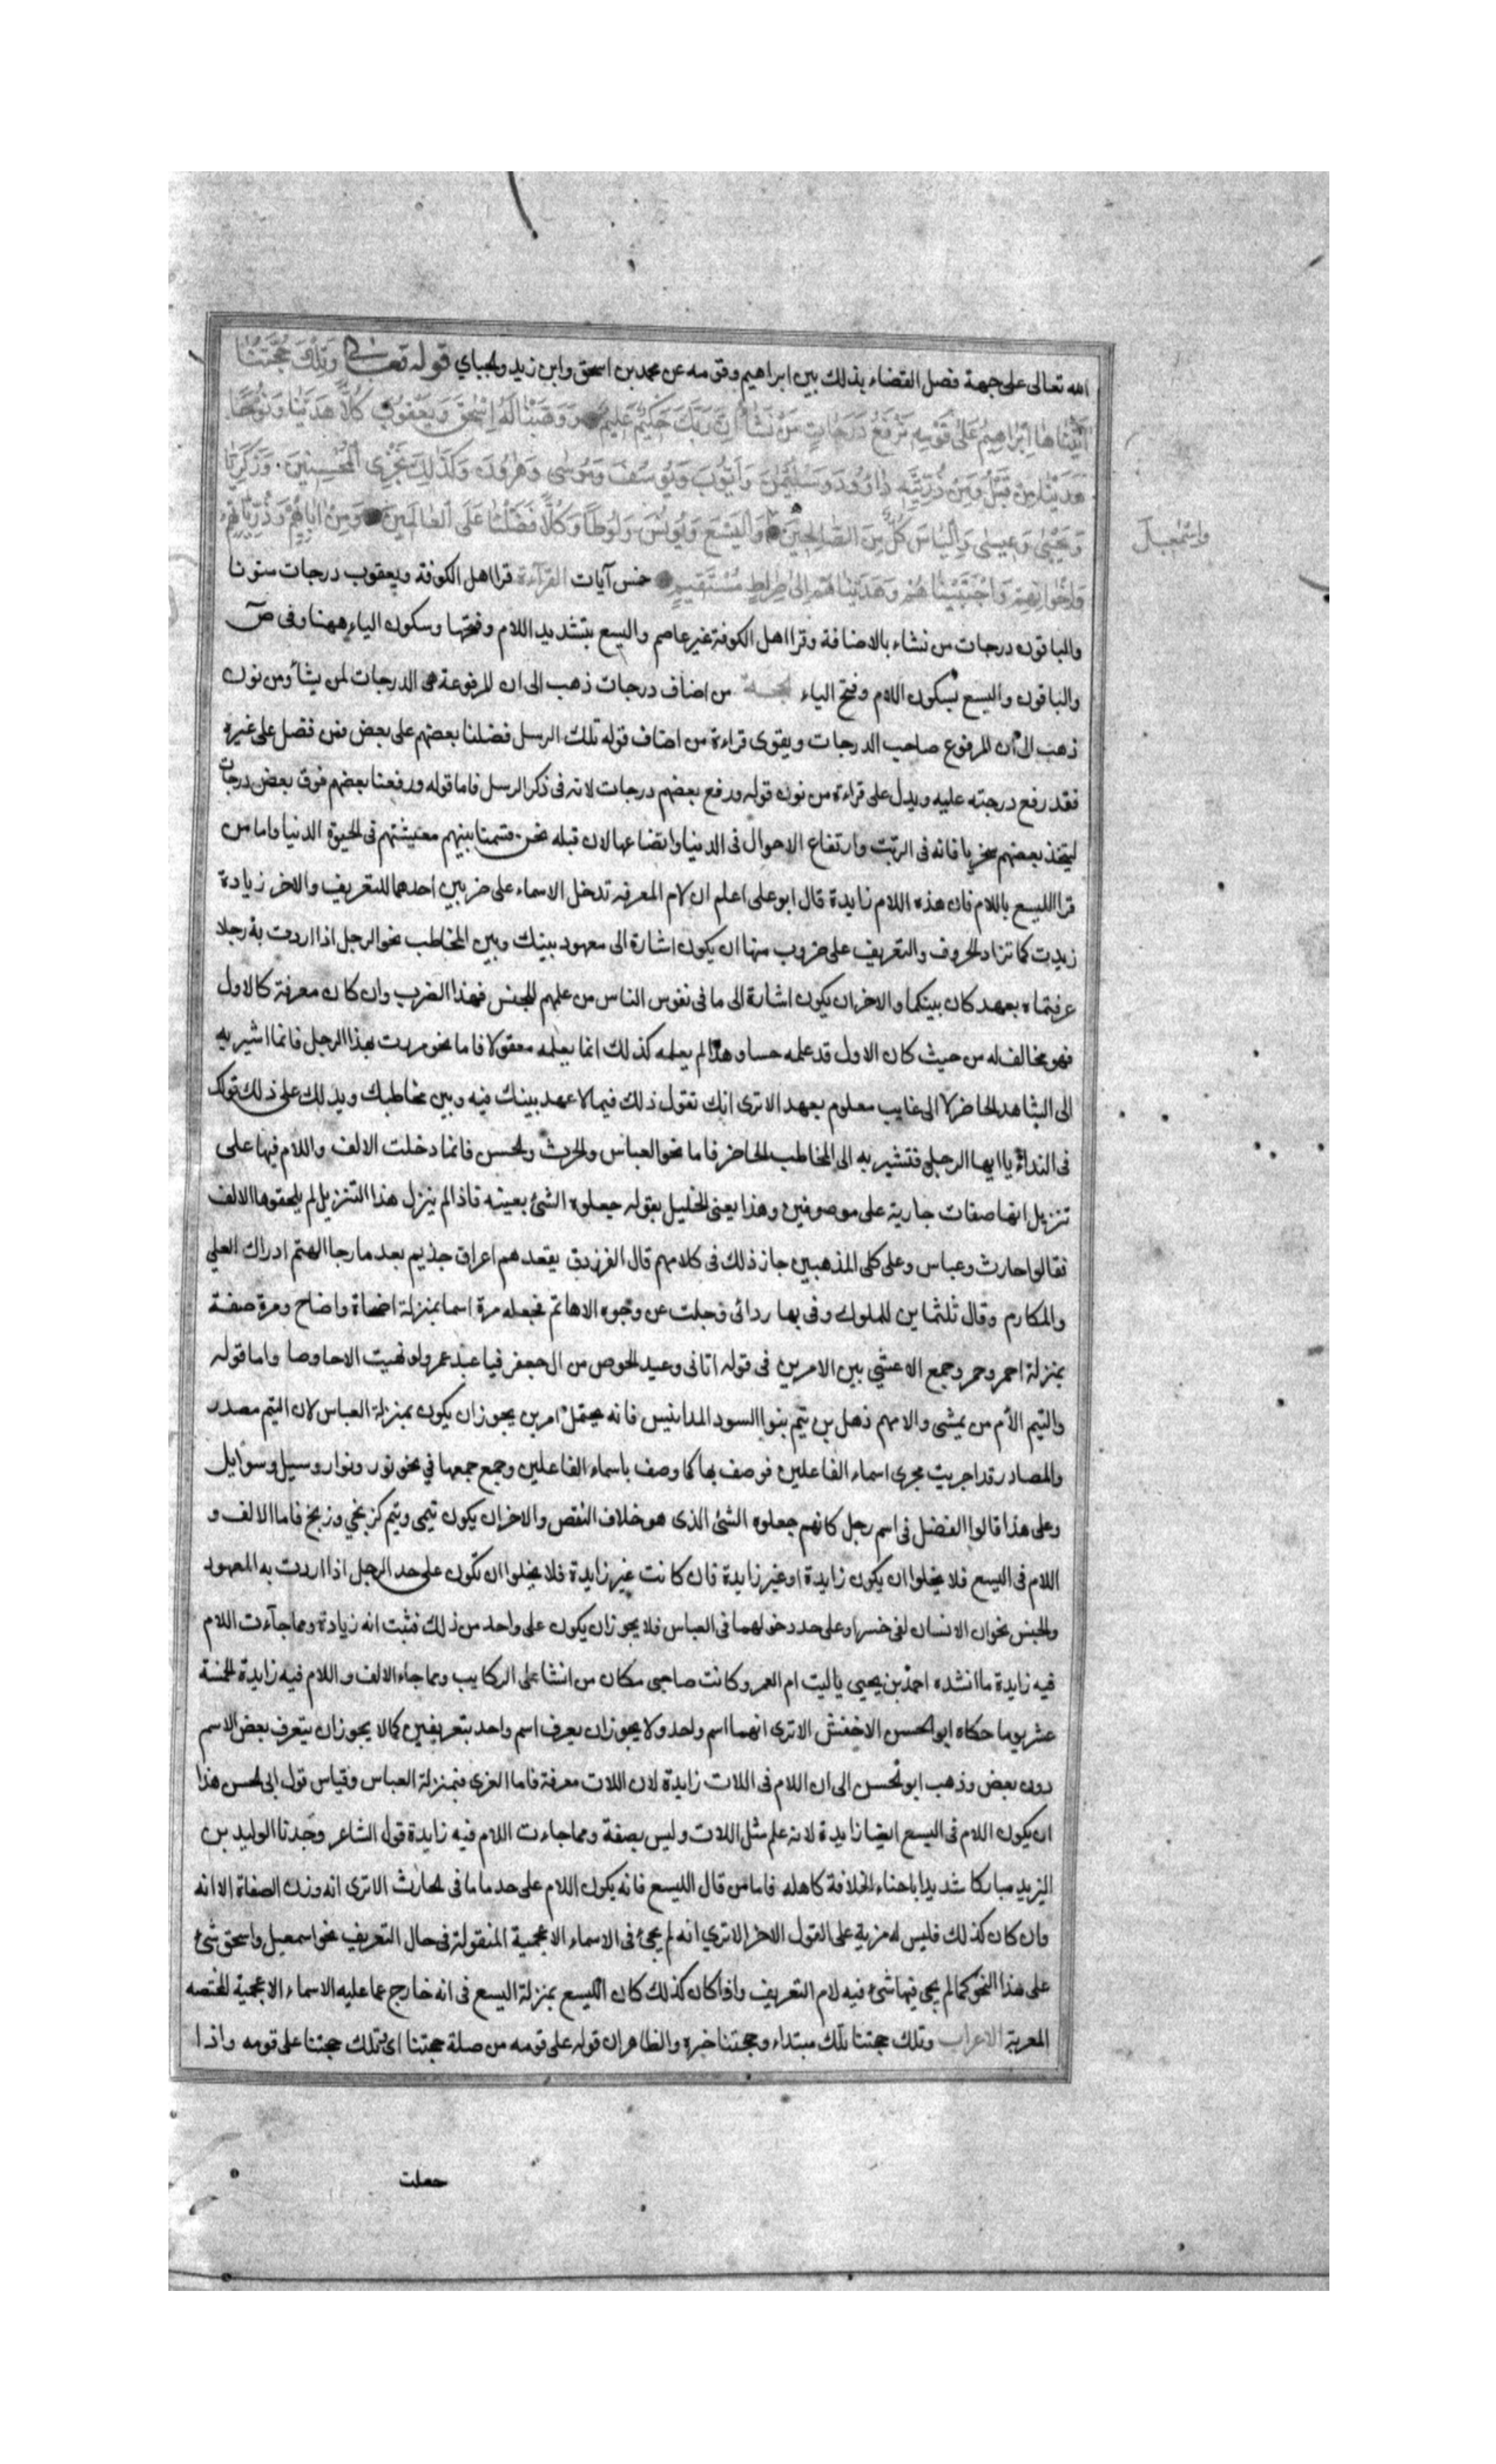 الله تعالى على جهة فصل القضاء بذلك بين ابراهيم وقومه عن محمد بن اسحق وابن زيد والجباي قوله تعالى وَتِلْكَ حُجَّتُنَا
آتَيْنَاهَا اِبْرَاهِيمَ عَلَى قَوْمِهِ نَرْفَعُ دَرَجَاتٍ مَنْ نَشَاءُ اِنَّ رَبَّكَ حَكِيمٌ عَلِيمٌ وَوَهَبْنَا لَهُ اِسْحَقَ وَيَعْقُوبَ كُلًّا هَدَيْنَا وَنُوحًا
هَدَيْنَا مِنْ قَبْلُ وَمِنْ ذُرِّيَّتِهِ دَاوُودَ وَسُلَيْمٰنَ وَاَيُّوبَ وَيُوسُفَ وَمُوسَى وَهٰرُونَ وَكَذٰلِكَ نَجْزِي الْمُحْسِنِينَ وَزَكَرِيَّا
وَيَحْيَى وَعِيسَى وَاِلْيَاسَ كُلٌّ مِنَ الصَّالِحِينَ وَالْيَسَعَ وَيُونُسَ وَلُوطًا وَكُلًّا فَضَّلْنَا عَلَى الْعَالَمِينَ وَمِنْ اٰبَائِهِمْ وَذُرِّيَّاتِهِمْ
واسْمٰعيلَ
وَاِخْوَانِهِمْ وَاجْتَبَيْنَاهُمْ وَهَدَيْنَاهُمْ اِلَى صِرَاطٍ مُسْتَقِيمٍ خمس آيات القرآءة قرا اهل الكوفة ويعقوب درجات منونا
والباقون درجات من نشاء بالاضافة وقرا اهل الكوفة غير عاصم والليسع بتشديد اللام وفتحها وسكون الياء ههنا وفى صٓ
والباقون واليسع بسكون اللام وفتح الياء الحجة من اضاف درجات ذهب الى ان المرفوعة هى الدرجات لمن يشأ ومن نون
ذهب الى ان المرفوع صاحب الدرجات ويقوى قراءة من اضاف قوله تلك الرسل فضلنا بعضهم على بعض فمن فضل على غيره
فقد رفع درجته عليه ويدل على قراءة من نون قوله ورفع بعضهم درجات لانه فى ذكر الرسل فاما قوله ورفعنا بعضهم فوق بعض درجات
ليتخذ بعضهم سخريا فانه فى الرتب وارتفاع الاحوال فى الدنيا واتضاعها لان قبله نحن قسمنا بينهم معيشتهم فى الحيوة الدنيا واما من
قرا الليسع باللام فان هذه اللام زايدة قال ابو على اعلم ان لام المعرفة تدخل الاسماء على ضربين احدهما للتعريف والاخر زيادة
زيدت كما تزاد الحروف والتعريف على ضروب منها ان يكون اشارة الى معهود بينك وبين المخاطب نحو الرجل اذا اردت به رجلا
عرفتماه بعهد كان بينكما والاخر ان يكون اشارة الى ما فى نفوس الناس من علمهم للجنس فهذا الضرب وان كان معرفة كالاول
فهو مخالف له من حيث كان الاول قد علمه حسا وهذا لم يعلمه كذلك انما يعلمه معقولا فاما نحو مررت بهذا الرجل فانما اشير به
الى الشاهد الحاضر لا الى غايب معلوم بعهد الاترى انك تقول ذلك فيما لا عهد بينك فيه وبين مخاطبك ويدلك على ذلك قولك
فى النداء يا ايها الرجل فتشير به الى المخاطب الحاضر فاما نحو العباس والحرث والحسن فانما دخلت الالف واللام فيها على
تنزيل انها صفات جارية على موصوفين وهذا يعنى الخليل بقوله جعلوه الشئ بعينه فاذا لم ينزل هذا التنزيل لم يلحقوها الالف
فقالوا حارث وعباس وعلى كلى المذهبين جاز ذلك فى كلامهم قال الفرزدق يقعدهم اعراق جذيم بعد ما رجا الهتم ادراك العلى
والمكارم وقال ثلثماين للملوك وفى بها ردائى وجلت عن وجوه الاهاتم فجعله مرة اسما بمنزلة اضحاة واضاح ومرة صفة
بمنزلة احمر وحمر وجمع الاعشى بين الامرين فى قوله اتانى وعيد الحوص من ال جعفر فيا عبد عمرو لو نهيت الاحاوصا واما قوله
والتيم الأم من يمشى والامهم ذهل بن تيم بنوا السود المدانيس فانه يحتمل امرين يجوز ان يكون بمنزلة العباس لان التيم مصدر
والمصادر قد اجريت مجرى اسماء الفاعلين فوصف بها كما وصف باسماء الفاعلين وجمع جمعها في نحو نور ونوار وسيل وسوايل
وعلى هذا قالوا الفضل فى اسم رجل كانهم جعلوه الشئ الذى هو خلاف النقص والاخر ان يكون تيمى وتيم كزنجي وزنج فاما الالف و
اللام فى اليسع فلا يخلوا ان يكون زايدة او غير زايدة فان كانت غير زايدة فلا يخلوا ان تكون على حد الرجل اذا اردت به المعهود
والجنس نحو ان الانسان لفى خسر او على حد دخولهما فى العباس فلا يجوز ان يكون على واحد من ذلك فثبت انه زيادة ومما جآءت اللام
فيه زايدة ما انشده احمد بن يحيى يا ليت ام العمرو كانت صاحبى مكان من انشا على الركايب ومما جاء الالف واللام فيه زايدة الخمسة
عشر يوما حكاه ابو الحسن الاخفش الاترى انهما اسم واحد ولا يجوز ان يعرف اسم واحد بتعريفين كما لا يجوز ان يتعرف بعض الاسم
دون بعض وذهب ابو الحسن الى ان اللام فى اللات زايدة لان اللات معرفة فاما العزى فبمنزلة العباس وقياس قول ابى الحسن هذا
ان يكون اللام فى اليسع ايضا زايدة لانه علم مثل اللات وليس بصفة ومما جاءت اللام فيه زايدة قول الشاعر وجدنا الوليد بن
اليزيد مباركا شديدا باحناء الخلافة كاهله فاما من قال الليسع فانه يكون اللام على حد ما ما فى الحارث الاترى انه وزن الصفاة الا انه
وان كان كذلك فليس له مزية على القول الاخر الاتري انه لم يجئ فى الاسماء الاعجمية المنقولة فى حال التعريف نحو اسمعيل واسحق شئ
على هذا النحو كما لم يجى فيها شئ فيه لام التعريف واذا كان كذلك كان الليسع بمنزلة اليسع فى انه خارج عما عليه الاسماء الاعجمية المختصه
المعربة الاعراب وتلك حجتنا تلك مبتداء وحجتنا خبره والظاهر ان قوله على قومه من صلة حجتنا اى تلك حجتنا على قومه واذا
جعلت